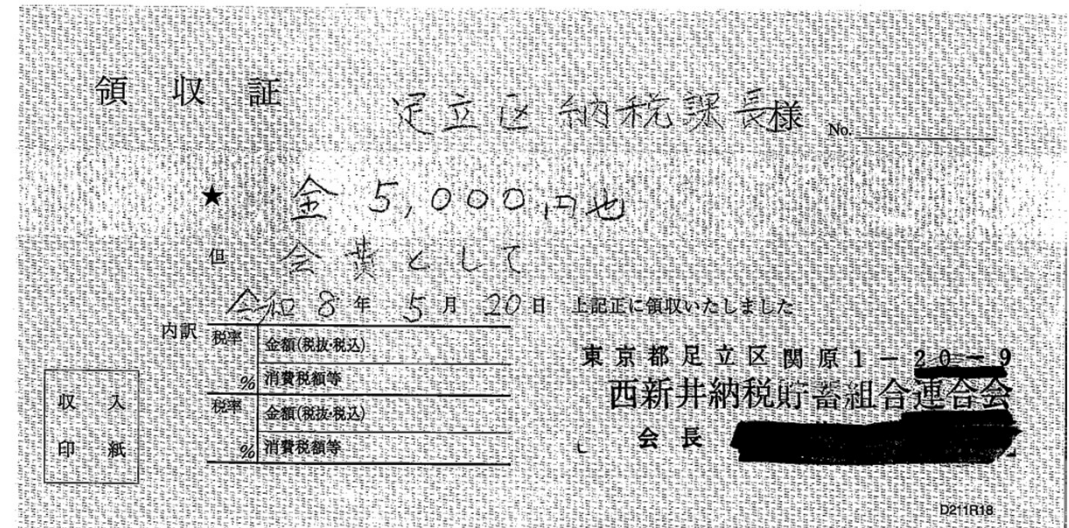 領収証
足立区納税課長様 No.
★ 金 5,000円也
但 会費として
令和8年5月20日 上記正に領収いたしました
内訳 税率 金額(税抜・税込)
% 消費税額等
税率 金額(税抜・税込)
% 消費税額等
収入
印紙
東京都足立区関原1-20-9
西新井納税貯蓄組合連合会
会長
D211R18